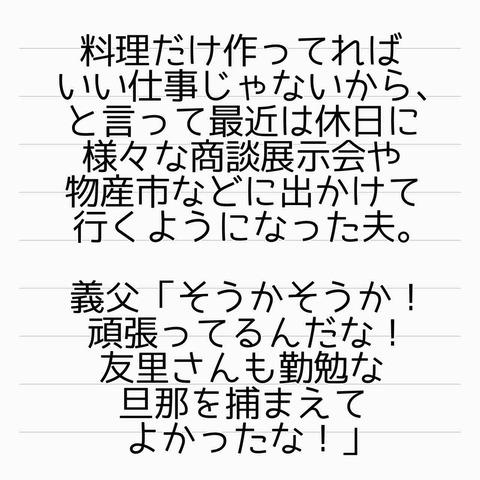 料理だけ作ってれば
いい仕事じゃないから、
と言って最近は休日に
様々な商談展示会や
物産市などに出かけて
行くようになった夫。
義父「そうかそうか！
頑張ってるんだな！
友里さんも勤勉な
旦那を捕まえて
よかったな！」